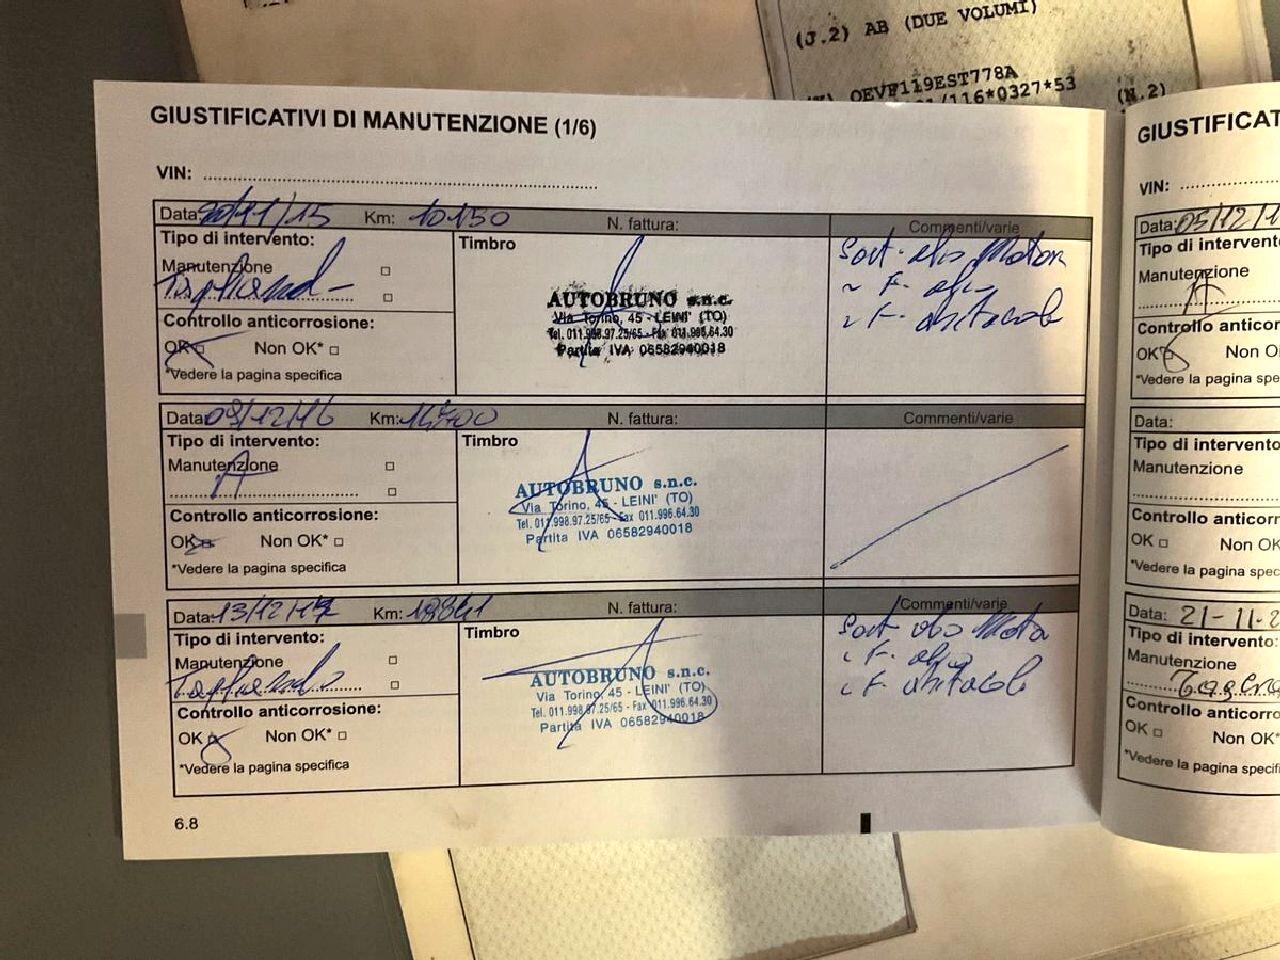 (J.2) AB (DUE VOLUMI)
OEVF119EST778A
/116*0327*53
(N.2)
GIUSTIFICATIVI DI MANUTENZIONE (1/6)
VIN:
Data: 20/11/15 Km: 10150 N. fattura: Commenti/varie
Tipo di intervento:
Manutenzione
Tagliando
Controllo anticorrosione:
OK Non OK*
*Vedere la pagina specifica
Timbro
AUTOBRUNO s.n.c.
Via Torino, 45 - LEINI' (TO)
Tel. 011.998.97.25/65 - Fax 011.996.64.30
Partita IVA 06582940018
Sost. olio Motore
~ F. olio
~ F. abitacolo
Data: 09/12/16 Km: N. fattura: Commenti/varie
Tipo di intervento:
Manutenzione
A
Controllo anticorrosione:
OK Non OK*
*Vedere la pagina specifica
Timbro
AUTOBRUNO s.n.c.
Via Torino, 45 - LEINI' (TO)
Tel. 011.998.97.25/65 - Fax 011.996.64.30
Partita IVA 06582940018
Data: 13/12/17 Km: 19841 N. fattura: Commenti/varie
Tipo di intervento:
Manutenzione
Tagliando
Controllo anticorrosione:
OK Non OK*
*Vedere la pagina specifica
Timbro
AUTOBRUNO s.n.c.
Via Torino, 45 - LEINI' (TO)
Tel. 011.998.97.25/65 - Fax 011.996.64.30
Partita IVA 06582940018
Sost olio Moto
~ F. olio
~ F. abitacolo
6.8
GIUSTIFICAT
VIN:
Data: 05/12/1
Tipo di intervento
Manutenzione
A
Controllo anticor
OK Non O
*Vedere la pagina spe
Data:
Tipo di intervento
Manutenzione
Controllo anticorro
OK Non OK
*Vedere la pagina spec
Data: 21-11-2
Tipo di intervento:
Manutenzione
Controllo anticorro
OK Non OK*
*Vedere la pagina specifi